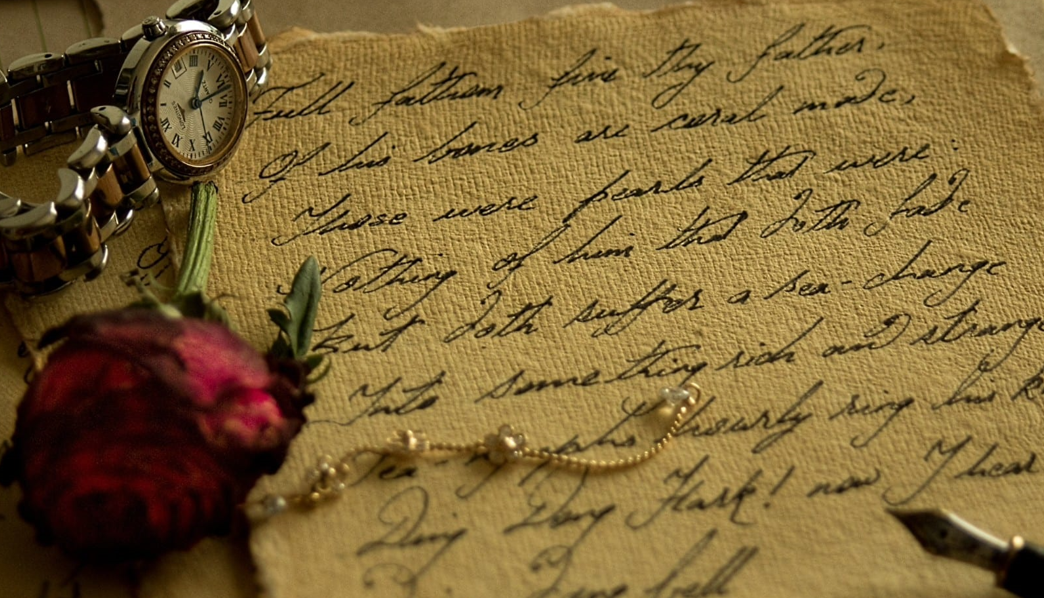 Full fathom five thy father,
Of his bones are coral made,
Those were pearls that were:
Nothing of him that doth fade
But doth suffer a sea-change
Into something rich and strange
Sea-nymphs hourly ring his k
Ding Dong Hark! now I hear
Dong bell